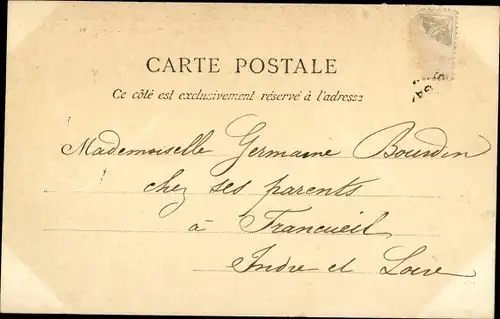 CARTE POSTALE
Ce côté est exclusivement réservé à l'adresse
Mademoiselle Germaine Bourdin
chez ses parents
à Francueil
Indre et Loire